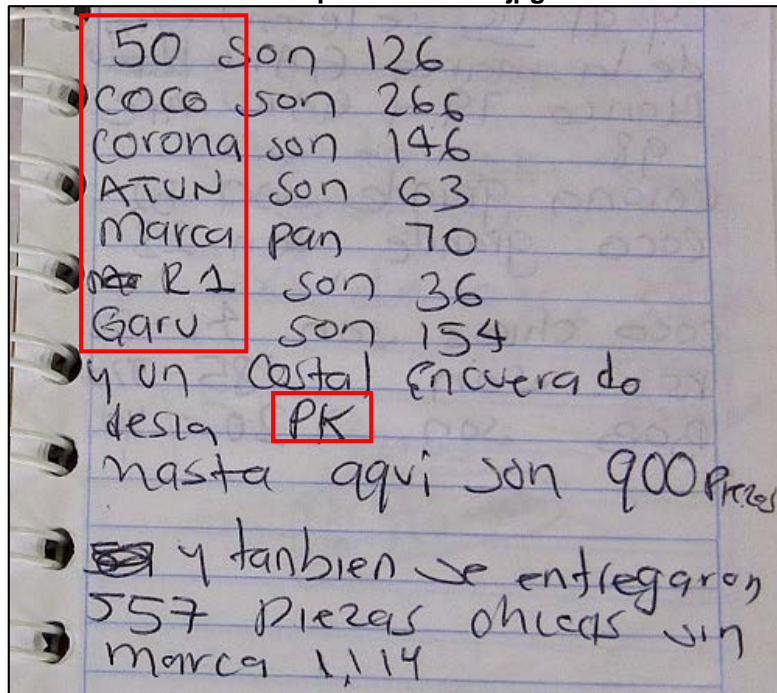 50 son 126
COCO son 266
Corona son 146
ATUN son 63
Marca pan 70
R1 son 36
Garu son 154
y un Costal Encuerado
desia PK
hasta aqui son 900 Piezas
y tanbien se entregaron
557 Piezas chicas sin
marca 1,114